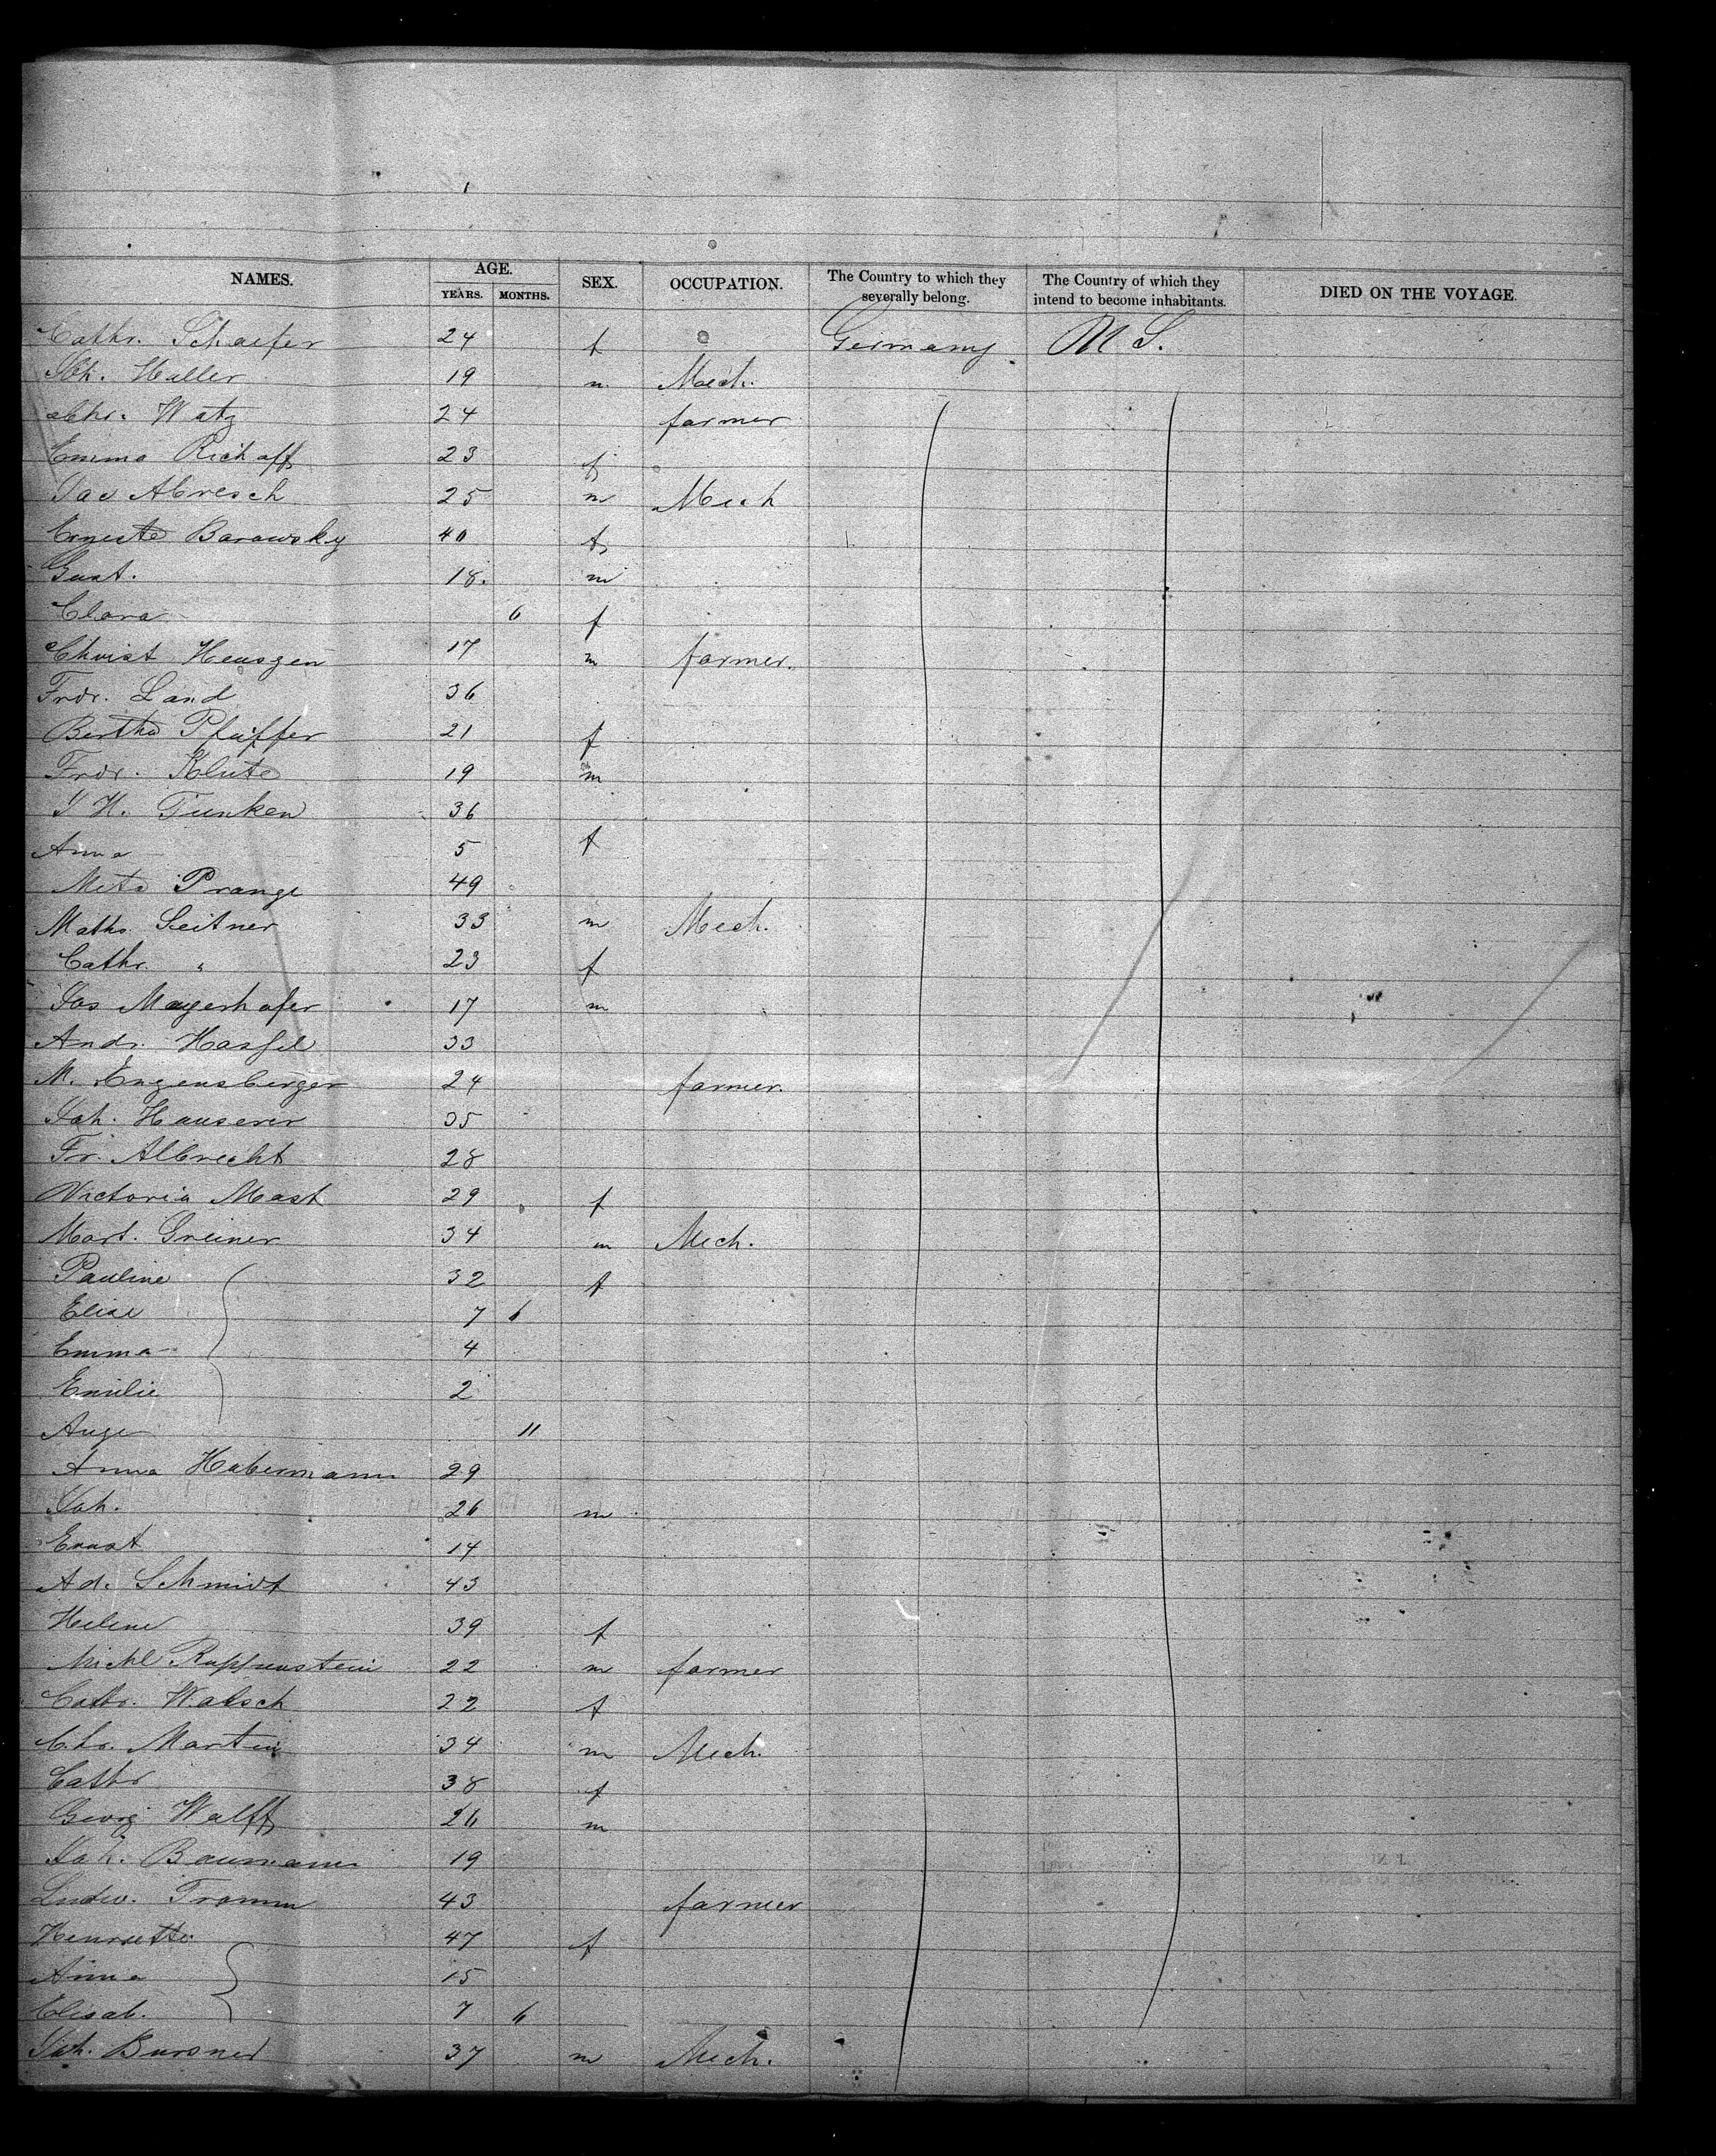 NAMES. AGE. SEX. OCCUPATION. The Country to which they severally belong. The Country of which they intend to become inhabitants. DIED ON THE VOYAGE.
YEARS. MONTHS.
Cathr. Schaefer 24 f Germany U S.
Joh. Haller 19 m Mech.
Chr. Watz 24 farmer
Emma Richoff 23 f
Jac Abresch 25 m Mech
Erneste Barowsky 40 f
Gust. 18. m
Clara 6 f
Christ Heusgen 17 m farmer.
Frdr. Land 36
Bertha Pfeiffer 21 f
Frdr. Klute 19 m
J H. Tunken 36
Anna 5 f
Meta Prange 49
Maths. Leitner 33 m Mech.
Cathr. " 23 f
Jos Mayerhofer 17 m
Andr. 33
M. Engensberger 24 farmer.
Joh. Hauserer 35
Fr. Albrecht 28
Victoria Mast 29 f
Mart. Greiner 34 m Mech.
Pauline 32 f
Elise 7 6
Emma 4
Emilie 2
Auge 11
Anna Habermann 29
Joh. 26 m
Ernst 14
Ad. Schmidt 43
Helene 39 f
Michl 22 m farmer
Cathr. Walsch 22 f
Chr. Martin 34 m Mech.
Cathr 38 f
Georg Walff 26 m
Joh. Baumann 19
Ludw. Fromm 43 farmer
Henriette 47 f
Anna 15
Elisab. 7 6
Joh. Bursner 37 m Mech.